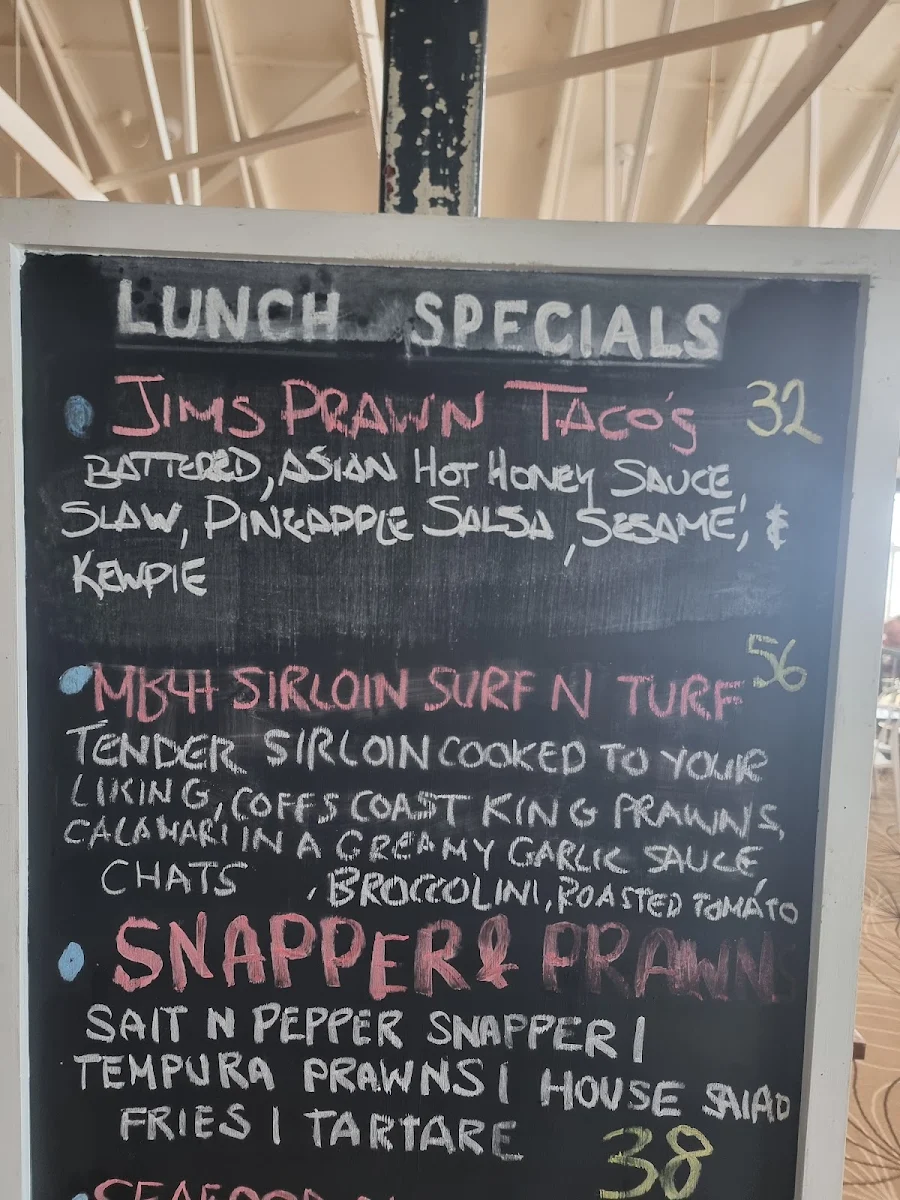 LUNCH SPECIALS
JIMS PRAWN TACO'S 32
BATTERED, ASIAN HOT HONEY SAUCE,
SLAW, PINEAPPLE SALSA, SESAME, &
KEWPIE
MB4+ SIRLOIN SURF N TURF 56
TENDER SIRLOIN COOKED TO YOUR
LIKING, COFFS COAST KING PRAWNS,
CALAMARI IN A CREAMY GARLIC SAUCE,
CHATS , BROCCOLINI, ROASTED TOMATO
SNAPPER & PRAWNS
SALT N PEPPER SNAPPER |
TEMPURA PRAWNS | HOUSE SALAD
FRIES | TARTARE
38
SEAFOOD